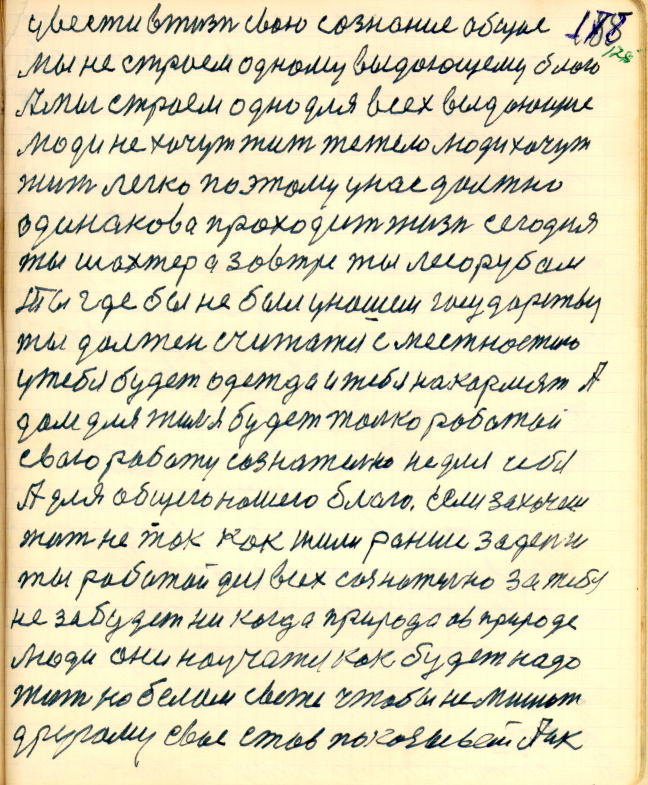 увести втизн свою сознание общие 188
128
Мы не строем одному выдающему благо
А мы строем одно для всех выдающие
люди не хочут жит тежело люди хочут
жит легко поэтому у нас должно
одинакова проходит жизн сегодня
ты шахтер а завтре ты лесорубам
Ты где бы не был у нашем государству
ты должен считатся с местностию
у тебя будет одежда и тебя накормят А
дом для жиля будет толко работай
свою работу сознателно не для себя
А для общего нашего благо. Если захочеш
жит не так как жили ранше за денги
ты работай для всех сознателно за тебя
не забудет ни когда природа а в природе
люди они научатся как будет надо
жит на белом свете чтобы не мешат
другому свае став показывай Как